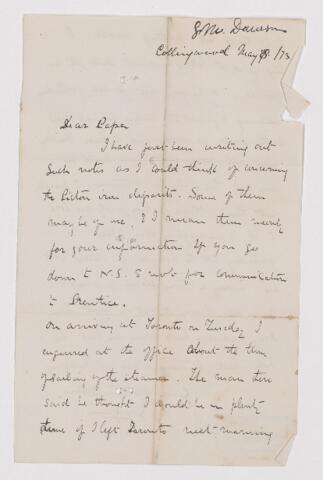 G.M. Dawson
Collingwood May 28. /73
Dear Papa
I have just been writing out
such notes as I could think of concerning
the Pictou iron deposits. Some of them
may be of use, & I mean them merely
for your information if you go
down to N.S. & not for communication
to Prentice.
On arriving at Toronto on Tuesday I
enquired at the office about the time
of sailing of the steamer. The man there
said he thought I would be in plenty
time if I left Toronto next morning